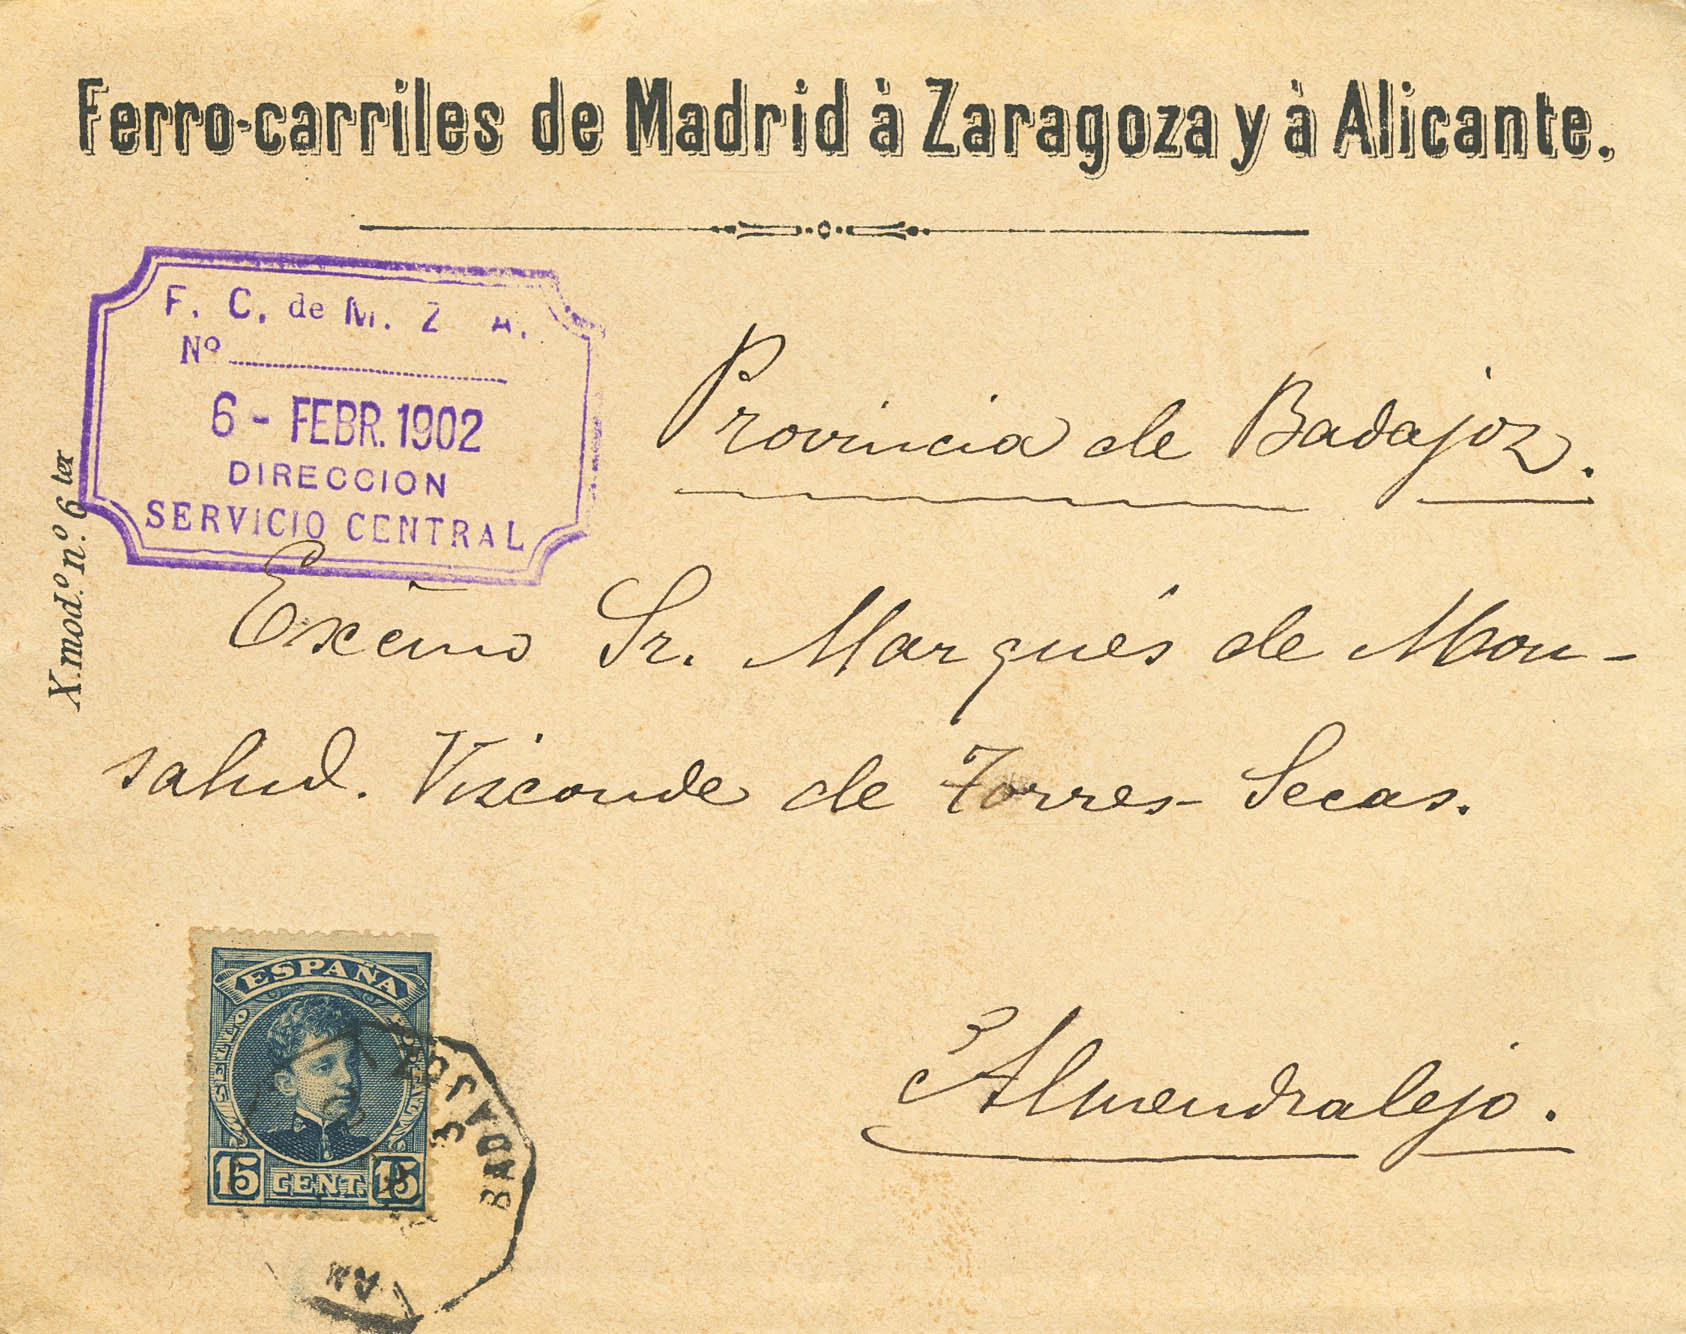 Ferro-carriles de Madrid à Zaragoza y à Alicante.
F. C. de M. Z A.
Nº
6 - FEBR. 1902
DIRECCION
SERVICIO CENTRAL
X. mod.º n.º 6 ter
Provincia de Badajoz.
Excmo Sr. Marqués de Mon-
salud. Visconde de Torres-Secas.
Almendralejo.
ESPAÑA
SELLO
15 CENT. 15
BADAJOZ